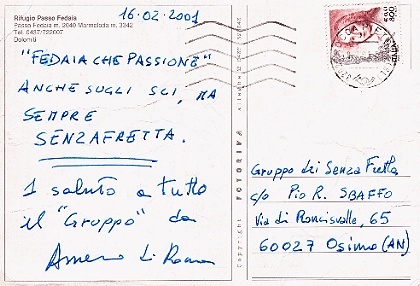 Rifugio Passo Fedaia
Passo Fedaia m. 2040 Marmolada m. 3342
Tel. 0437/722007
Dolomiti
16.02.2001
"FEDAIA CHE PASSIONE"
ANCHE SUGLI SCI, MA
SEMPRE
SENZAFRETTA.
1 saluto a tutto
il "Gruppo" da
Copyright FOTORIVA
Gruppo dei Senza Fretta
c/o Pio R. SBAFFO
Via di Roncisvalle, 65
60027 Osimo (AN)